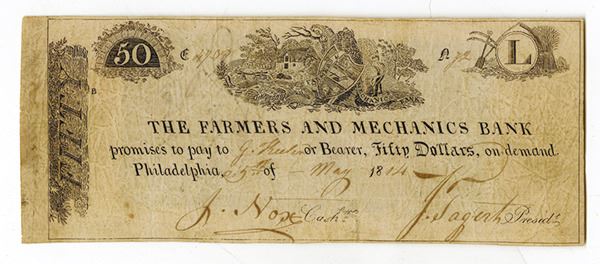 FIFTY
50
L
THE FARMERS AND MECHANICS BANK
promises to pay to G. or Bearer, Fifty Dollars, on demand.
Philadelphia, 25th of May 1814
J. Nox Cash.r J. Tagert Presid.t